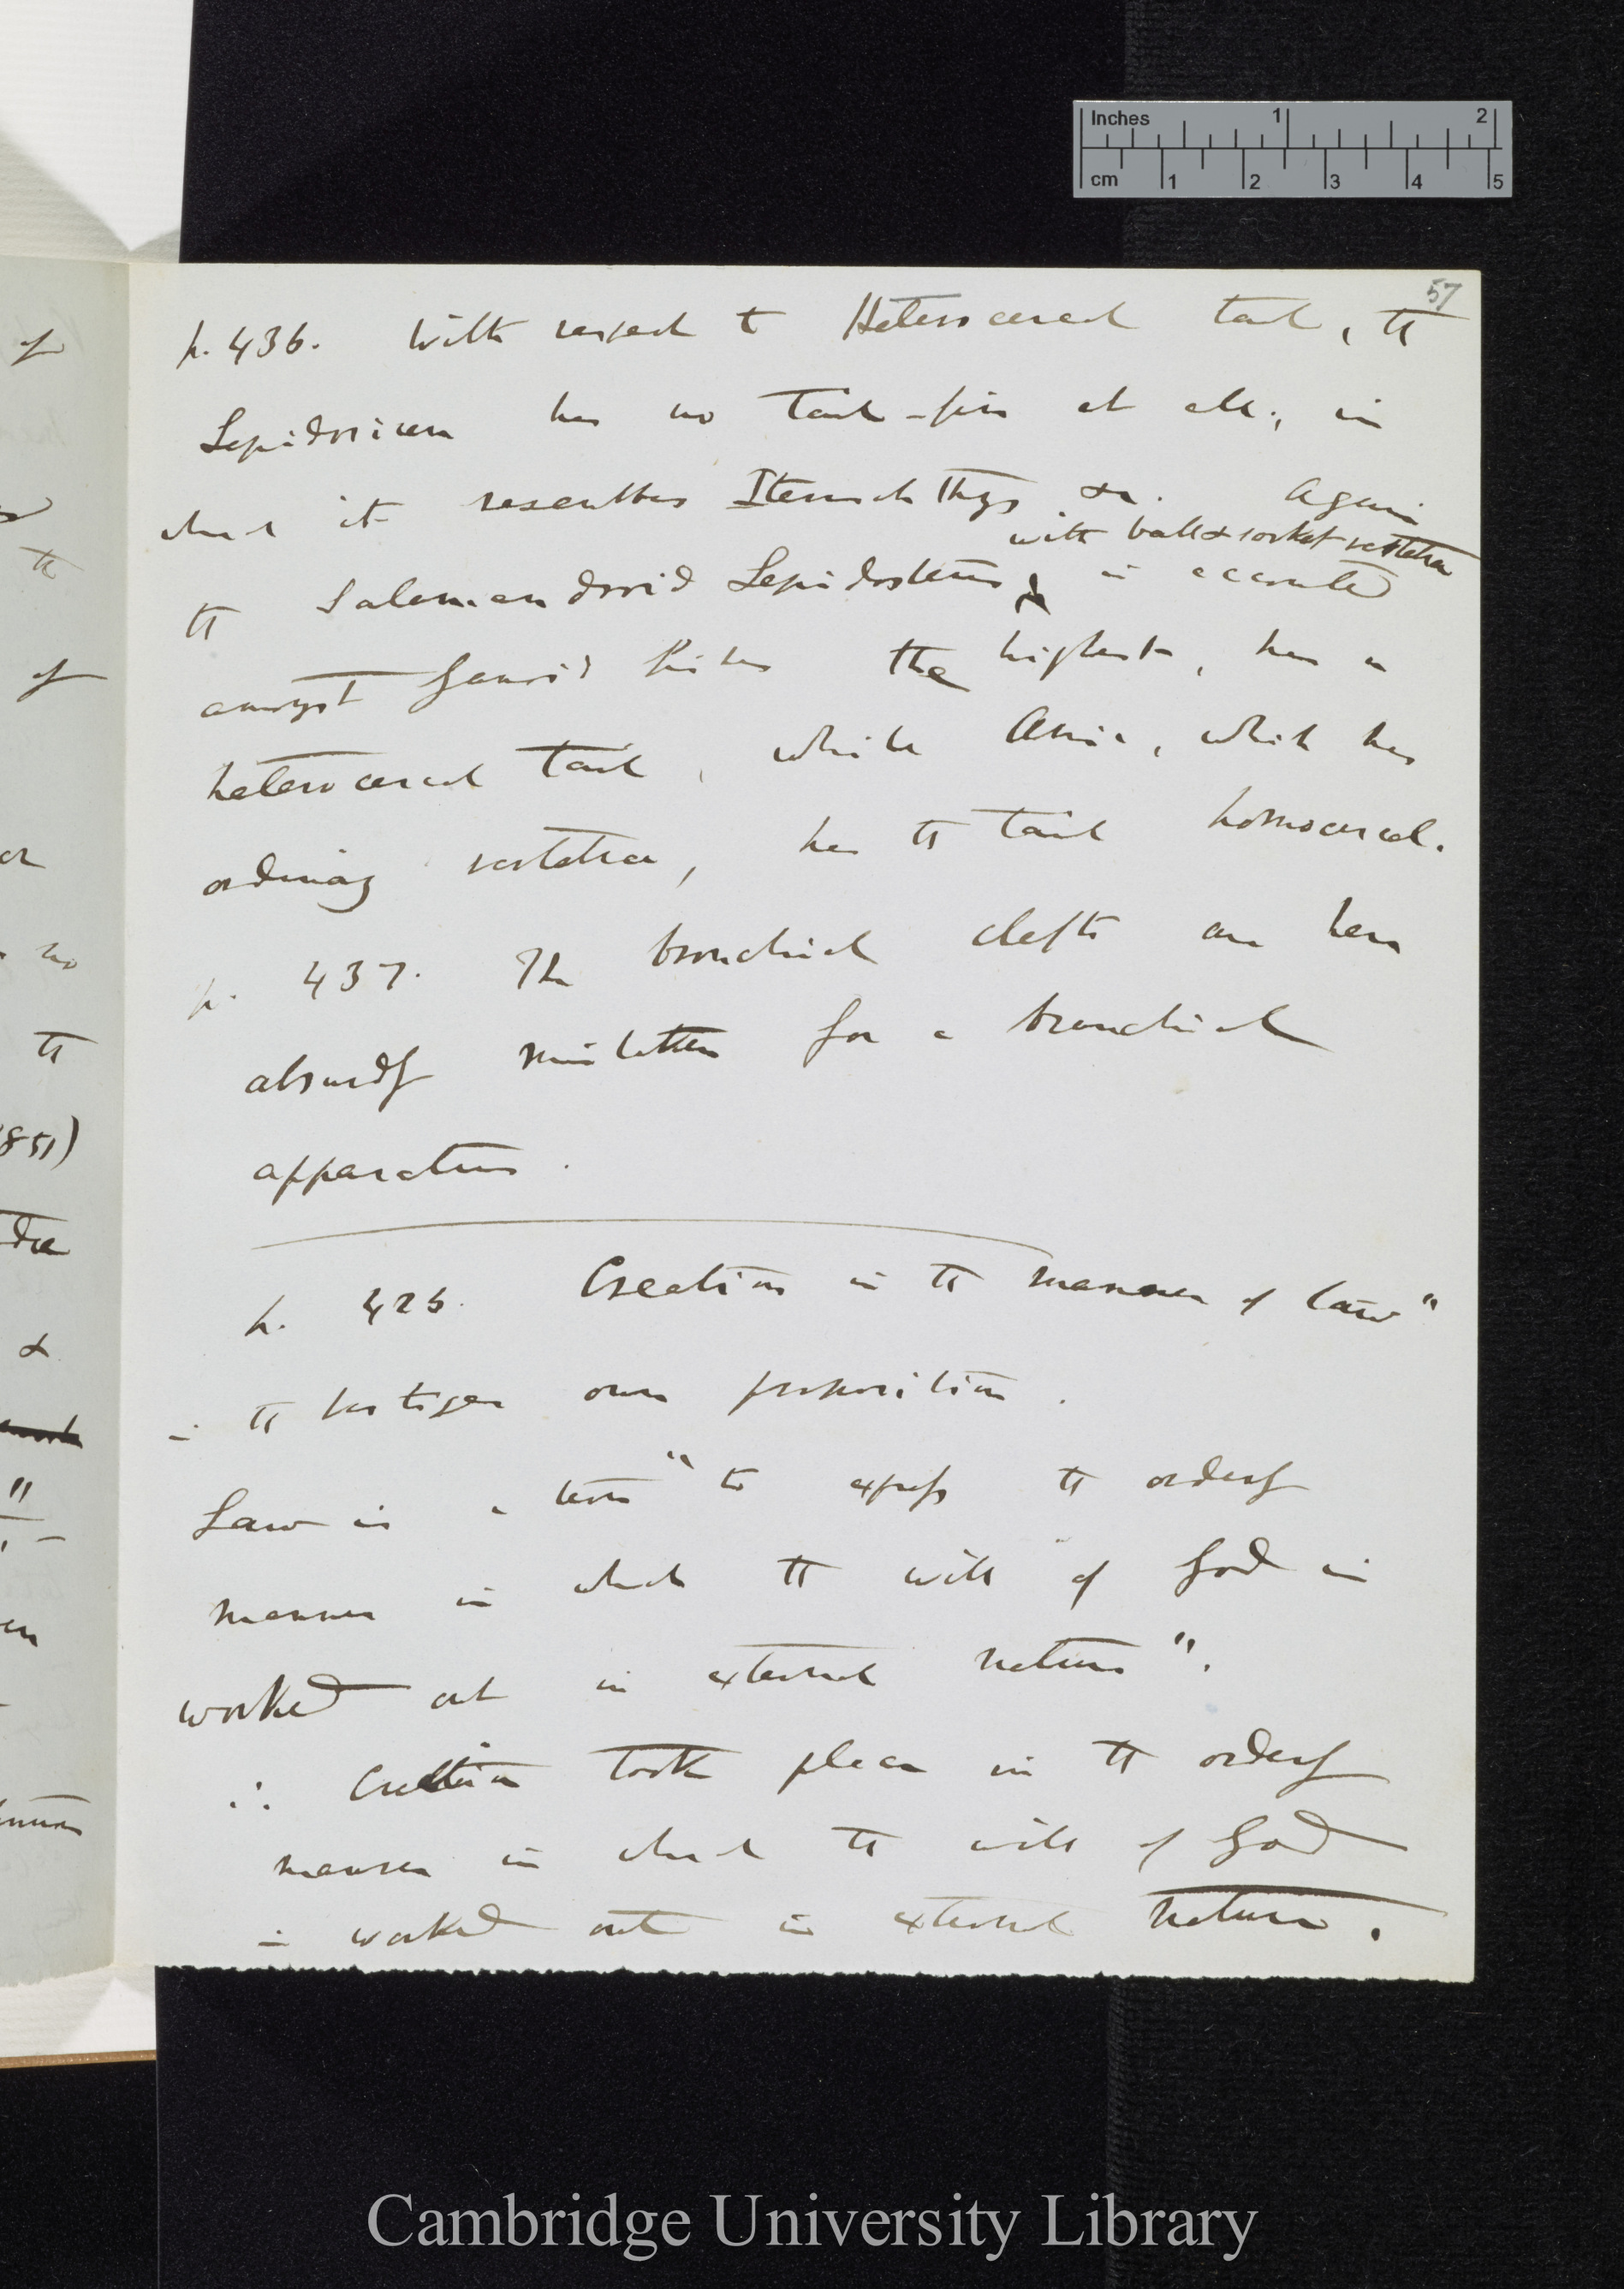 Inches 1 2
cm 1 2 3 4 5
57
p. 436. With respect to Heterocercal tail, the
Lepidosiren has no tail-fin at all; in
which it resembles Sternarchthys &c. Again
with ball & socket vertebræ
the Salamandroid Lepidosteus is accounted
amongst Ganoid fishes the highest, has a
heterocercal tail, while Amia, which has
ordinary vertebræ, has the tail homocercal.
p. 437. The branchial clefts are here
absurdly mistaken for a branchial
apparatus.
p. 425. Creation in the manner of law"
is the Vestiges own proposition.
Law is a term "to express the orderly
manner in which the will of God is
worked out in external nature".
∴ Creation took place in the orderly
manner in which the will of God
is worked out in external nature.
of
of
or
no
the
1851)
&
"
Cambridge University Library